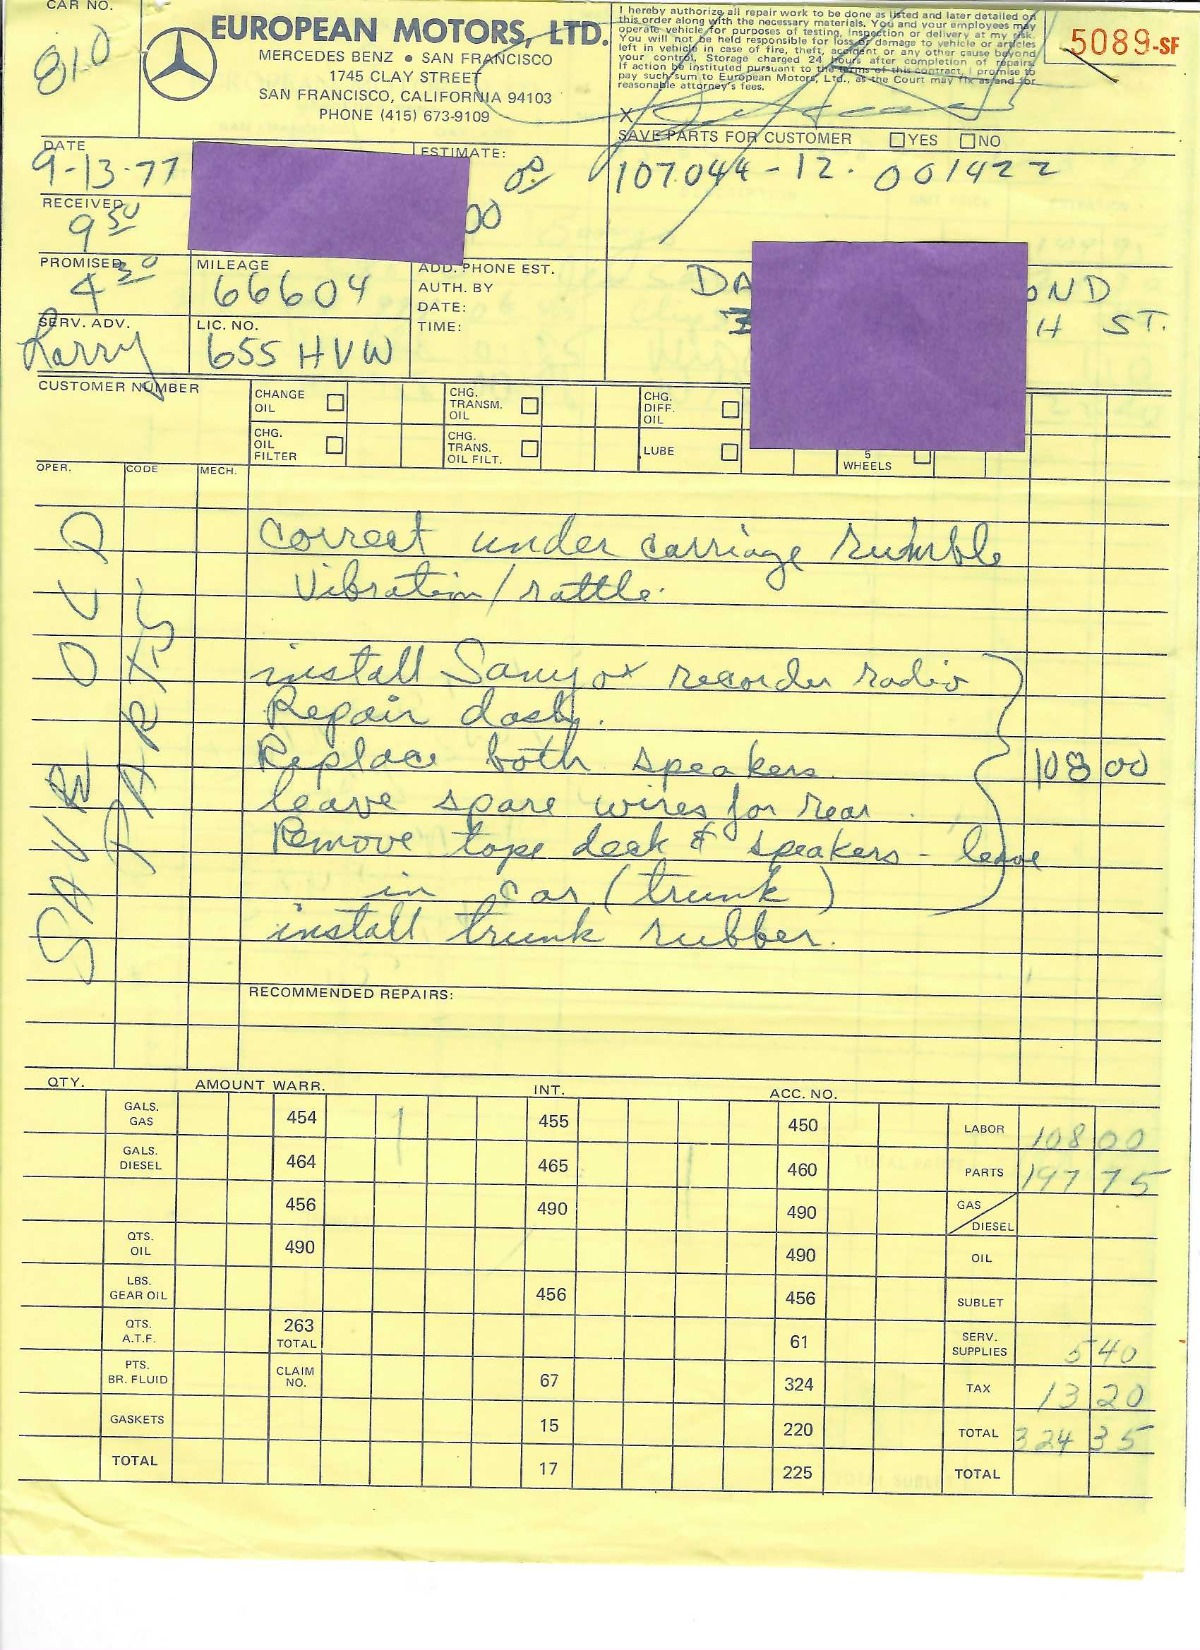 CAR NO.
810
EUROPEAN MOTORS, LTD.
MERCEDES BENZ • SAN FRANCISCO
1745 CLAY STREET
SAN FRANCISCO, CALIFORNIA 94103
PHONE (415) 673-9109
I hereby authorize all repair work to be done as listed and later detailed on
this order along with the necessary materials. You and your employees may
operate vehicle for purposes of testing, inspection or delivery at my risk.
You will not be held responsible for loss or damage to vehicle or articles
left in vehicle in case of fire, theft, accident or any other cause beyond
your control. Storage charged 24 hours after completion of repairs.
If action be instituted pursuant to the terms of this contract, I promise to
pay such sum to European Motors, Ltd., as the Court may fix as and for
reasonable attorney's fees.
5089-SF
X
SAVE PARTS FOR CUSTOMER YES NO
DATE
9-13-77
ESTIMATE:
00
107.044-12. 001422
RECEIVED
9 50
PROMISED
4 30
MILEAGE
66604
ADD. PHONE EST.
AUTH. BY
DATE:
TIME:
DA OND
H ST.
SERV. ADV.
Larry
LIC. NO.
655 HVW
CUSTOMER NUMBER
CHANGE OIL
CHG. TRANSM. OIL
CHG. DIFF. OIL
CHG. OIL FILTER
CHG. TRANS. OIL FILT.
LUBE
5 WHEELS
OPER. CODE MECH.
SAVE OLD
PARTS
Correct under carriage rumble
Vibration/rattle.
install Sanyo recorder radio
Repair dash.
Replace both speakers.
108 00
leave spare wires for rear.
Remove tape deck & speakers - leave
in car (trunk)
install trunk rubber.
RECOMMENDED REPAIRS:
QTY. AMOUNT WARR. INT. ACC. NO.
GALS. GAS 454 455 450 LABOR 108 00
GALS. DIESEL 464 465 460 PARTS 197 75
456 490 490 GAS / DIESEL
QTS. OIL 490 490 OIL
LBS. GEAR OIL 456 456 SUBLET
QTS. A.T.F. 263 TOTAL 61 SERV. SUPPLIES 5 40
PTS. BR. FLUID CLAIM NO. 67 324 TAX 13 20
GASKETS 15 220 TOTAL 324 35
TOTAL 17 225 TOTAL